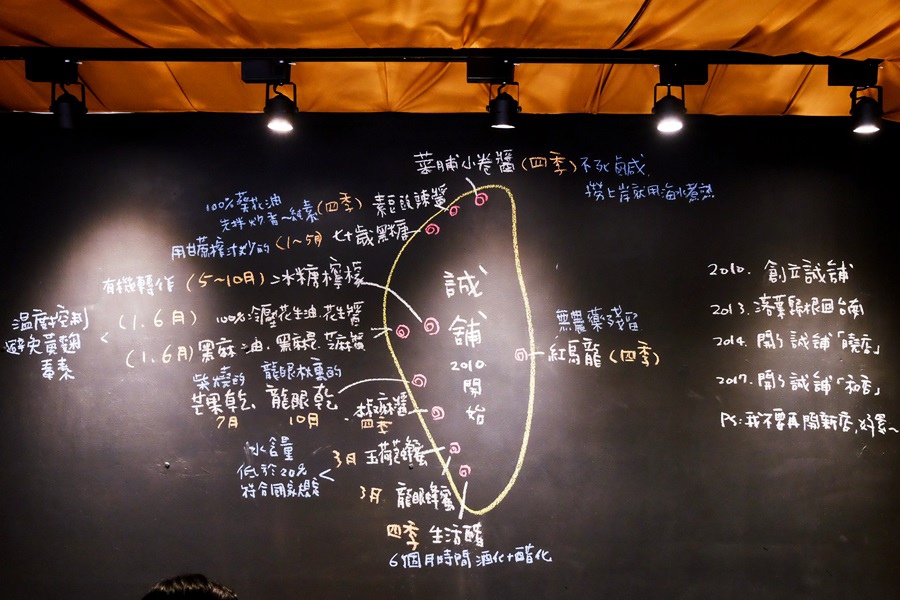 菜脯小卷醬(四季)不死鹹
撈上岸就用海水煮熟
100%葵花油
先拌炒香~純素(四季) 素豆豉辣醬
用甘蔗榨汁炒的(1~5月)七十歲黑糖
有機轉作(5~10月)冰糖檸檬
溫度控制
避免黃麴
毒素
(1.6月) 100%冷壓花生油.花生醬
(1.6月)黑麻油.黑麻.芝麻醬
柴燒的 龍眼木熏的
芒果乾、龍眼乾
7月 10月
椒麻醬
四季
水含量
低於20%
符合國家標準
3月 玉荷包蜂蜜
3月 龍眼蜂蜜
四季 生活醋
6個月時間 酒化+醋化
誠
舖
2010
開
始
無農藥殘留
紅烏龍(四季)
2010. 創立誠舖
2013. 落葉歸根回台南
2014. 開了誠舖「曉店」
2017. 開了誠舖「和店」
PS:我不要再開新店,好累~